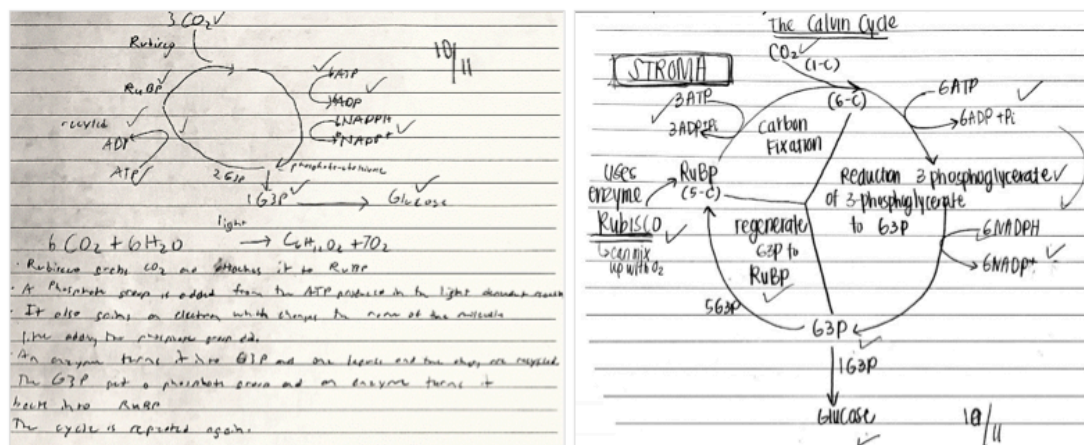 3 CO2
Rubisco
RuBP
6ATP
ADP
6NADPH
NADP+
recycled
ADP
ATP
2G3P
1G3P
Glucose
10/11
light
6CO2 + 6H2O → C6H12O2 + 7O2
Rubisco grabs CO2 and attaches it to RuBP
A Phosphate group is added from the ATP produced in the light dependent
It also gains an electron which changes the name of the molecule
like adding the phosphate group did.
An enzyme turns it into G3P and one leaves and are recycled
The G3P get a phosphate group and an enzyme turns it
back into RuBP
The cycle is repeated again.
The Calvin Cycle
CO2
(1-C)
STROMA
(6-C)
3ATP
3ADP+Pi
6ATP
6ADP + Pi
Carbon
Fixation
uses
enzyme
RUBISCO
can mix
up with O2
RuBp
(5-C)
Reduction
of 3-phosphoglycerate
to G3P
3 phosphoglycerate
regenerate
G3P to
RuBP
6NADPH
6NADP+
5G3P
G3P
1G3P
Glucose
10/11